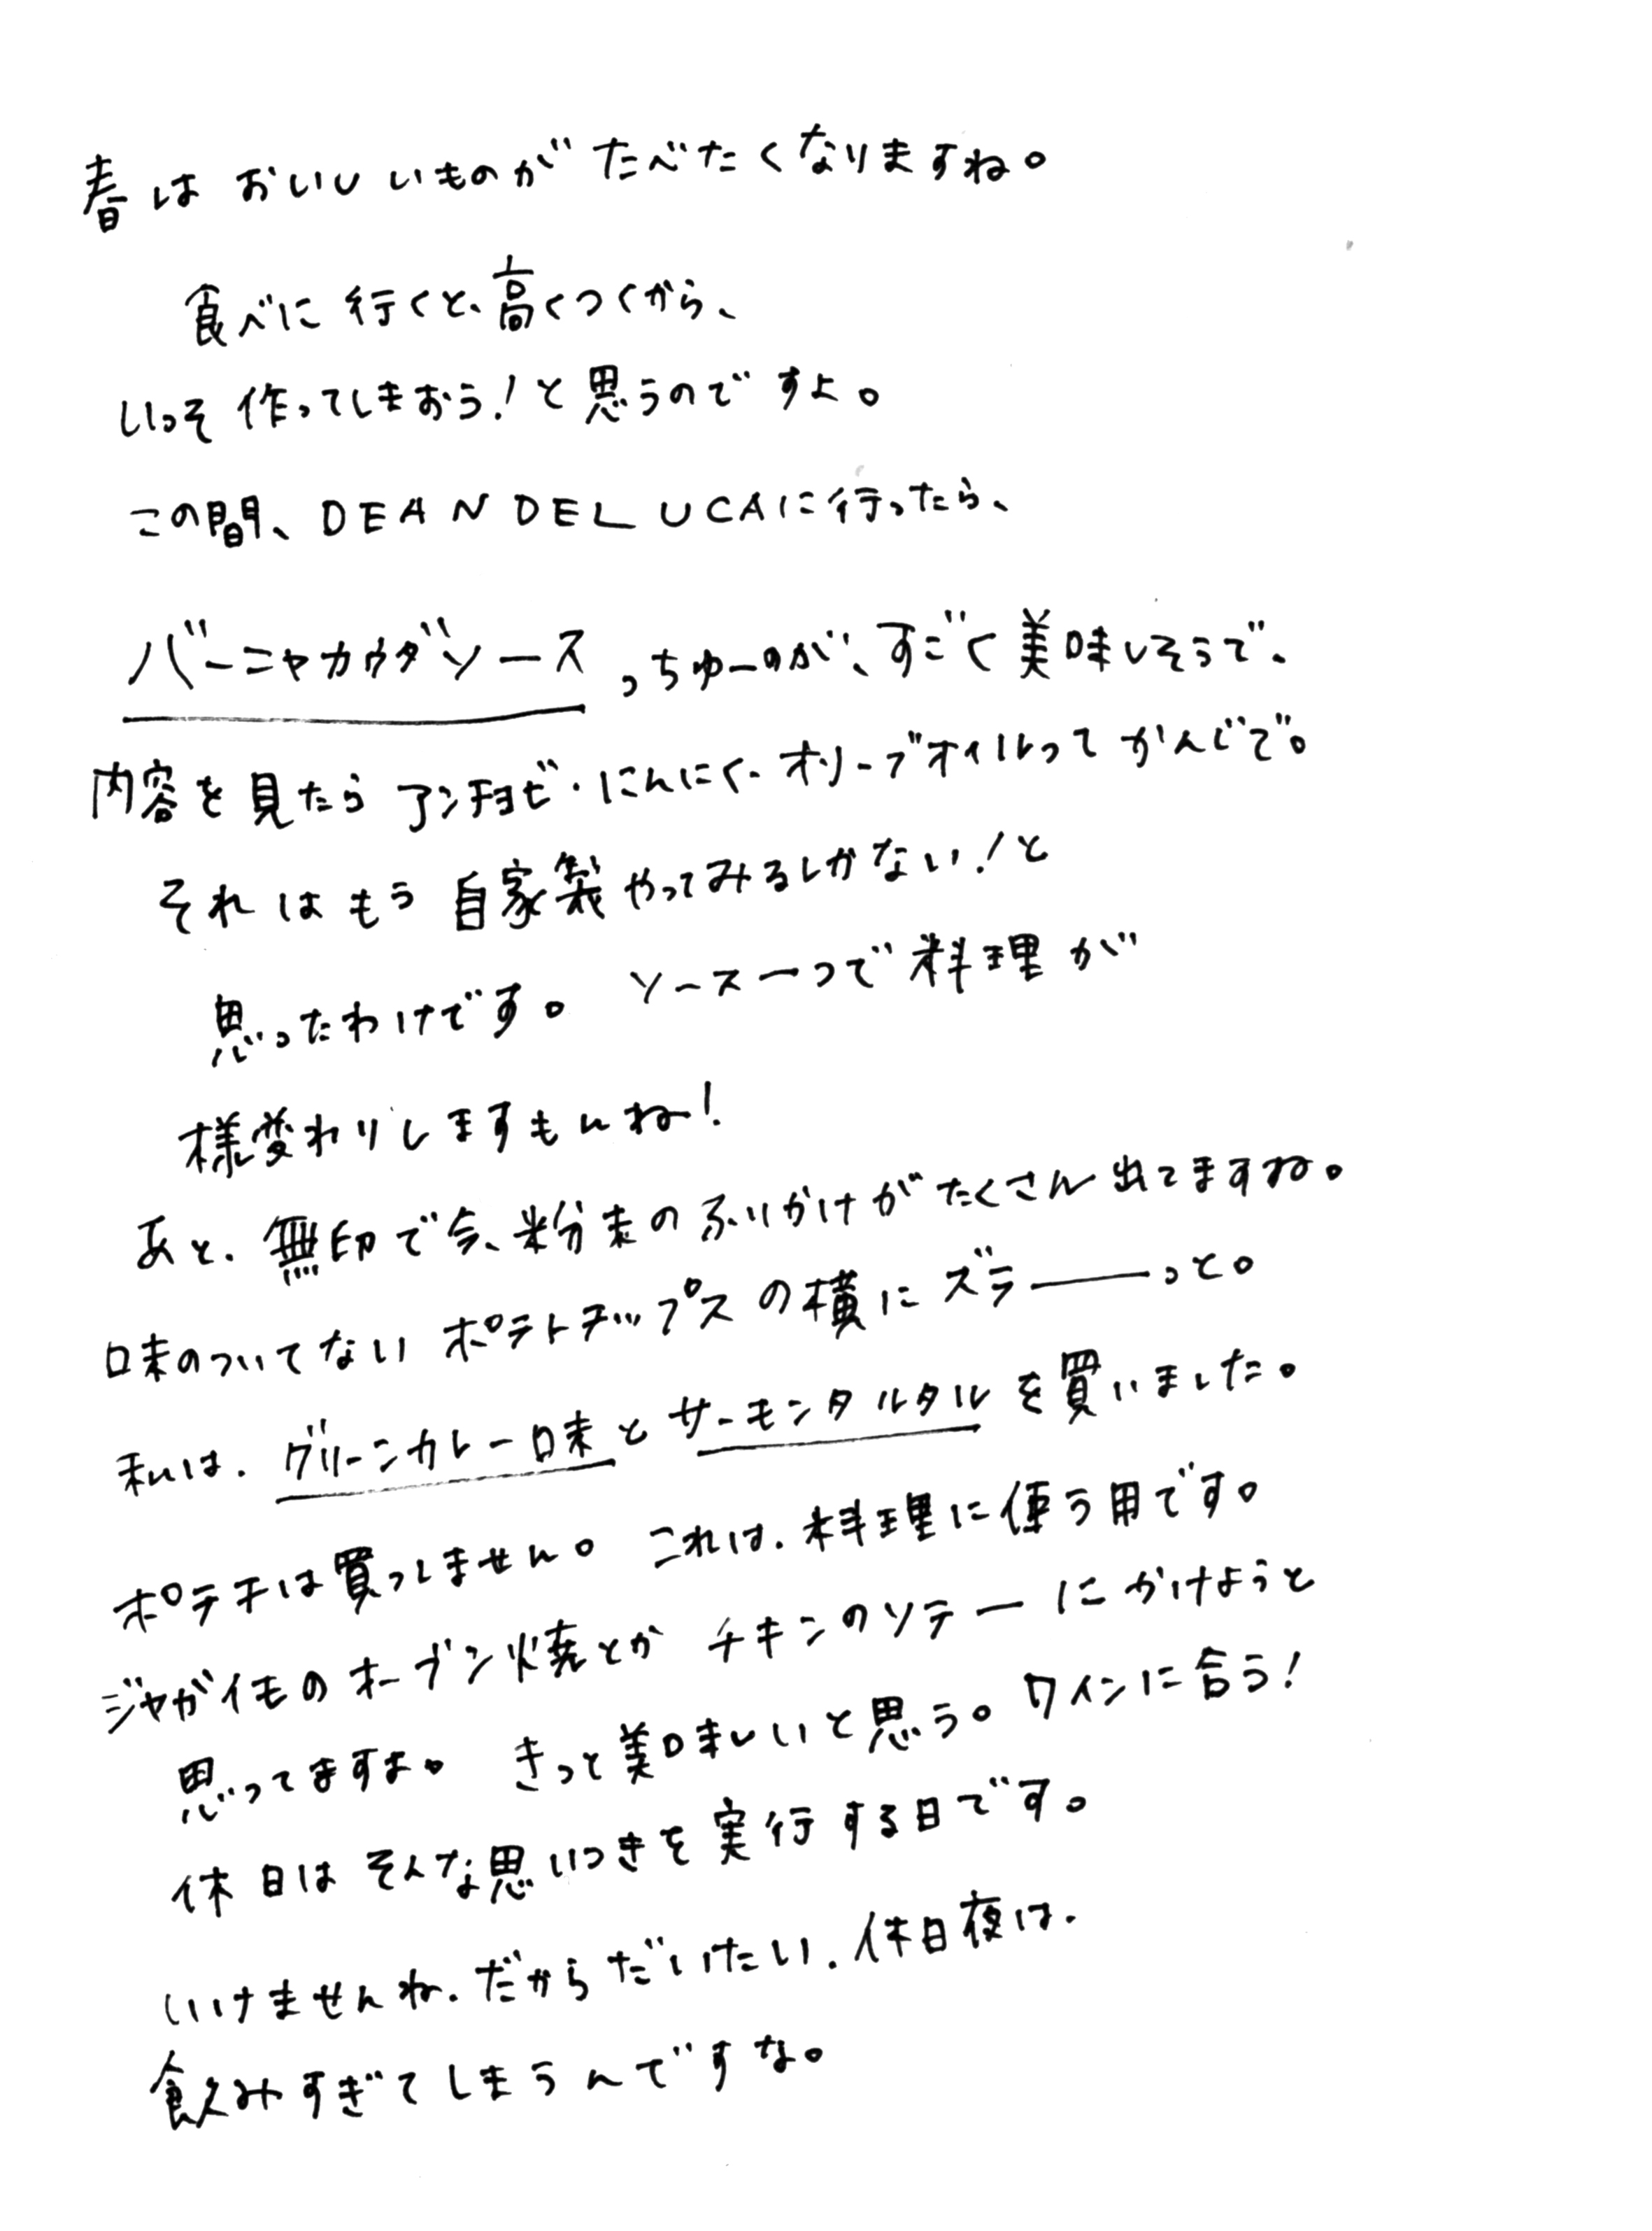 春は おいしいものが たべたくなりますね。
食べに 行くと、高くつくから、
いっそ 作ってしまおう!と 思うのですよ。
この間、DEAN DELUCAに行ったら、
バーニャカウダソース っちゅーのが、すごく美味しそうで、
内容を見たら アンチョビ・にんにく・オリーブオイルって かんじで。
それはもう 自家製やってみるしかない!と
思ったわけです。 ソース一つで料理が
様変わりしますもんね!
あと、無印で今、粉末のふりかけがたくさん出てますね。
味のついてない ポテトチップスの横に ズラーーっと。
私は、グリーンカレー味とサーモンタルタルを買いました。
ポテチは買ってしません。 これは、料理に使う用です。
ジャガイモのオーブン焼とか チキンのソテーにかけようと
思ってますよ。 きっと美味しいと思う。ワインに合う!
休日は そんな思いつきを実行する日です。
いけませんね、だから だいたい、休日夜は、
飲みすぎてしまうんですな。